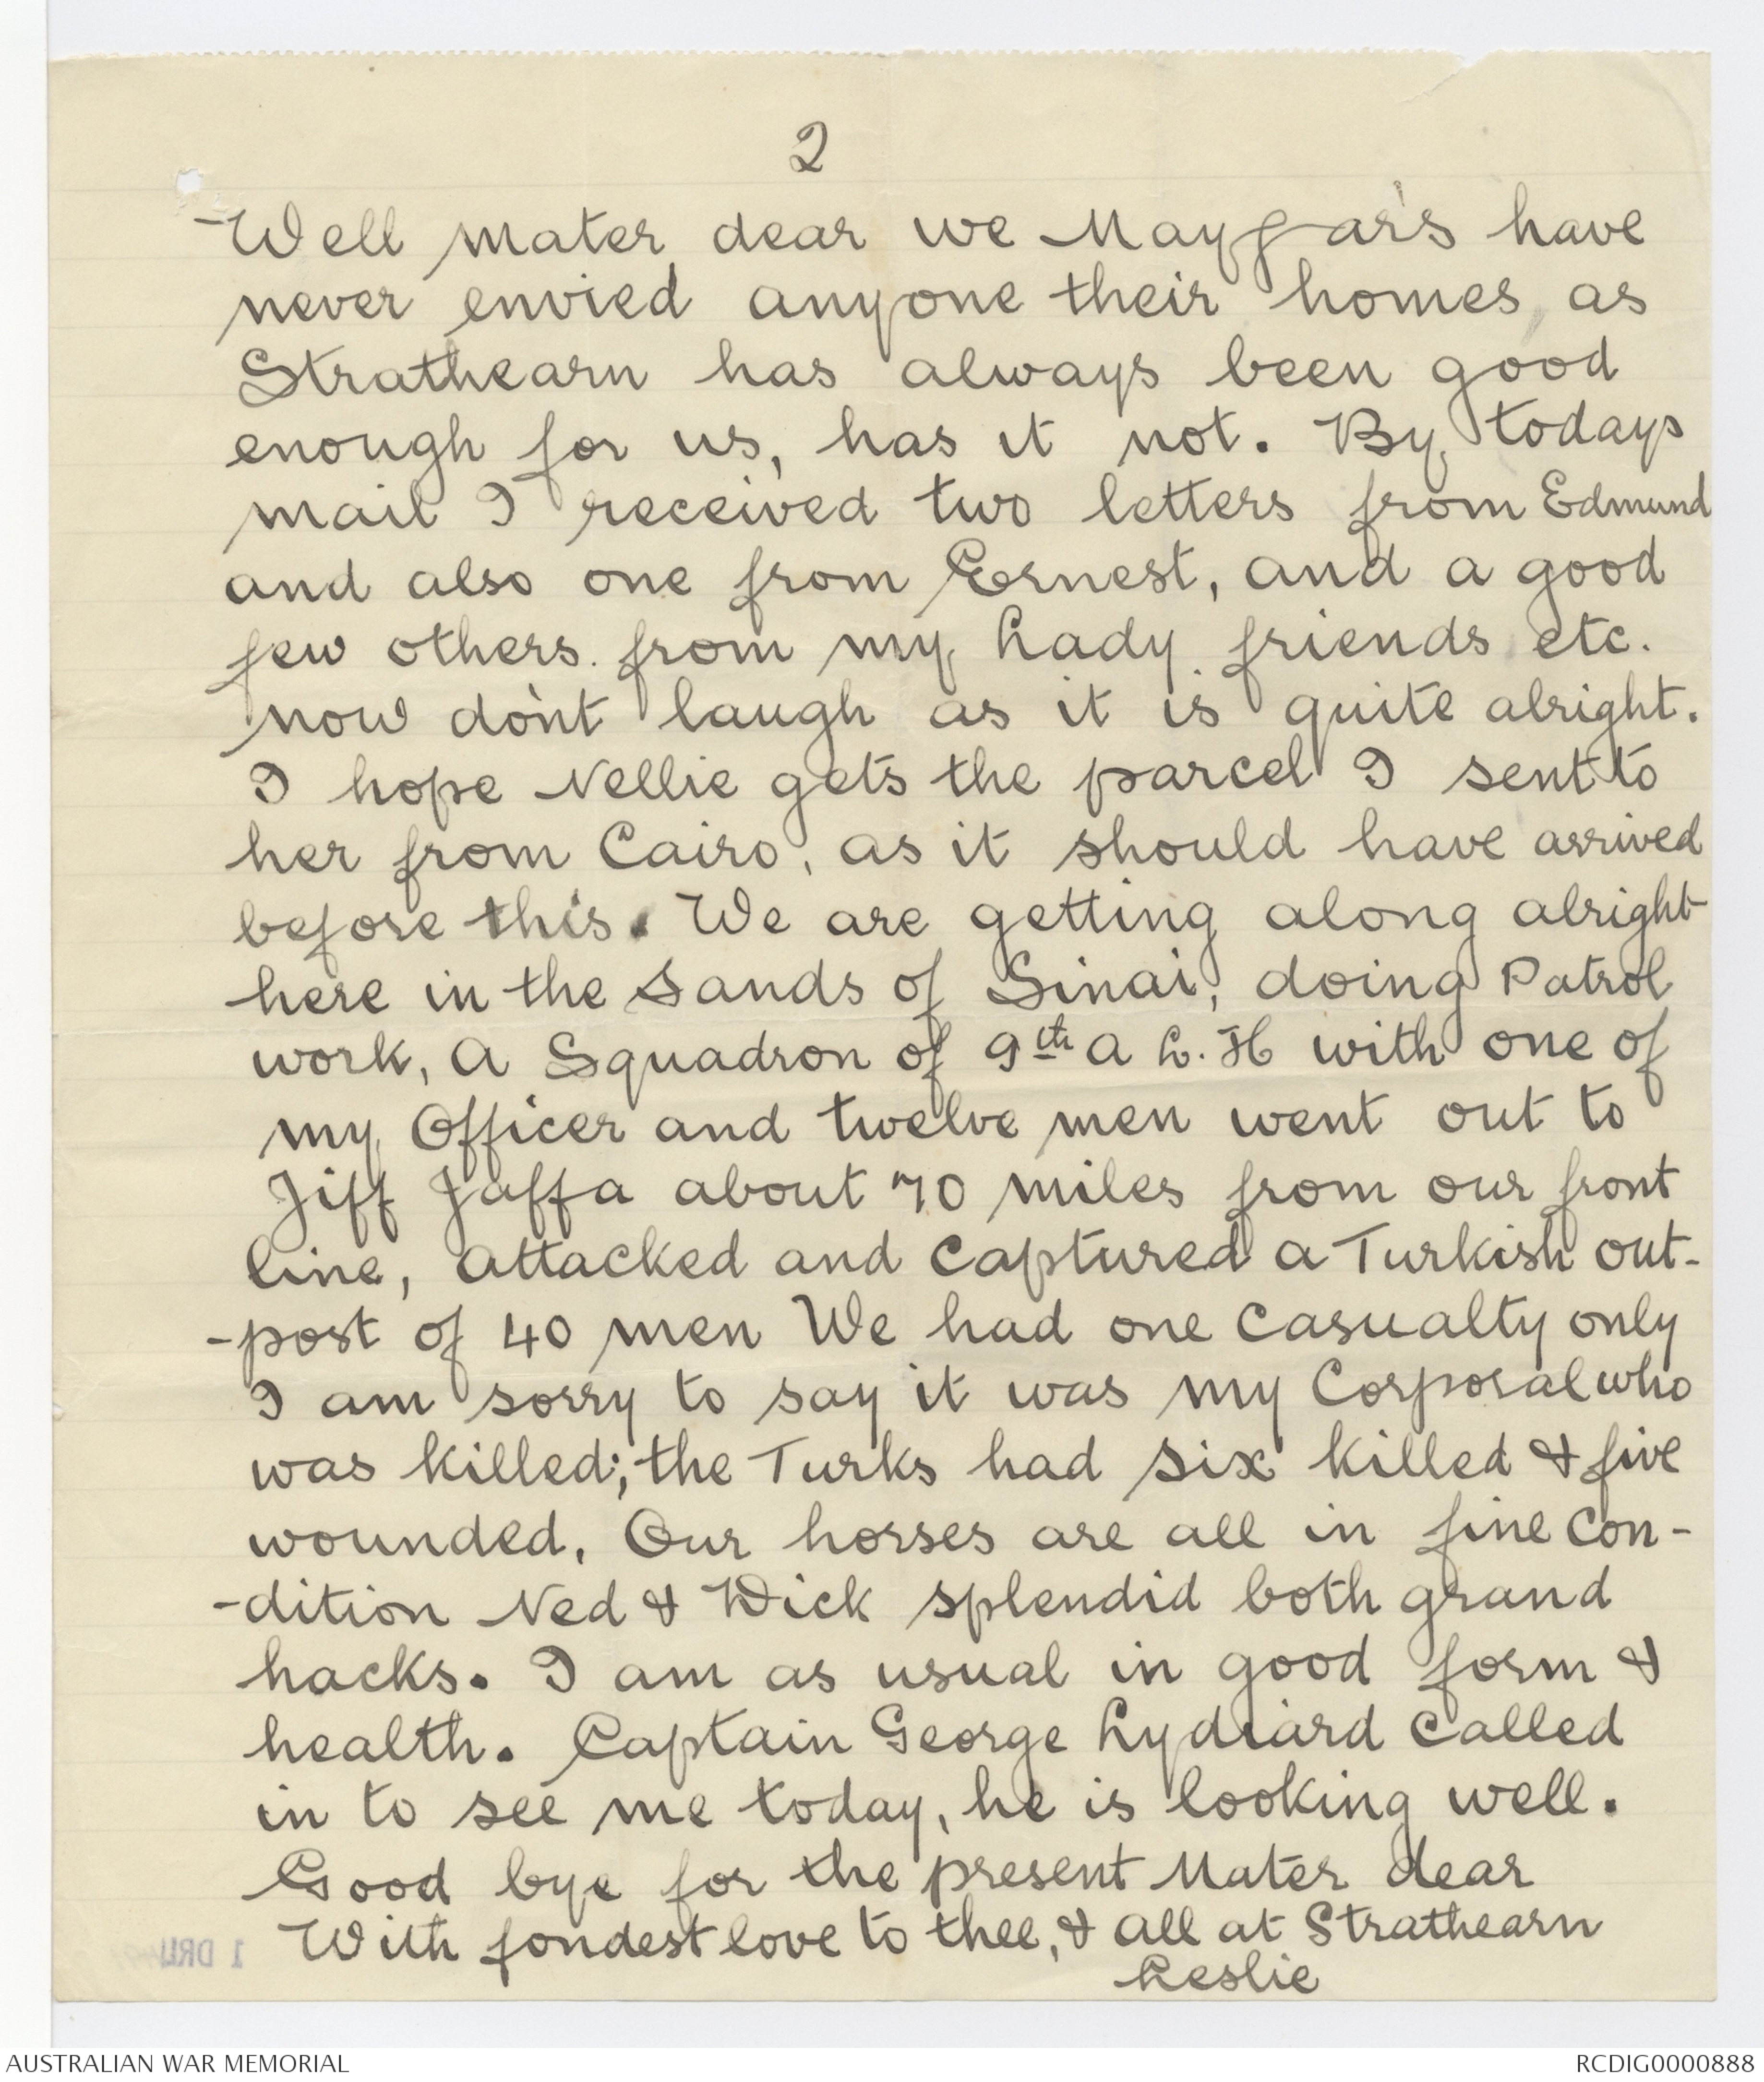 2
Well Mater dear we Maygar's have
never envied anyone their homes, as
Strathearn has always been good
enough for us, has it not. By todays
mail I received two letters from Edmund
and also one from Ernest, and a good
few others. from my Lady friends etc.
now don't laugh as it is quite alright.
I hope Nellie gets the parcel I sent to
her from Cairo, as it should have arrived
before this. We are getting along alright
here in the Sands of Sinai, doing Patrol
work, A Squadron of 9th A L. H with one of
my Officer and twelve men went out to
Jiff Jaffa about 70 miles from our front
line, attacked and captured a Turkish out-
-post of 40 men We had one casualty only
I am sorry to say it was my Corporal who
was killed; the Turks had six killed & five
wounded. Our horses are all in fine con-
-dition Ned & Wick splendid both grand
hacks. I am as usual in good form &
health. Captain George Lydiard called
in to see me today, he is looking well.
Good bye for the present Mater dear
With fondest love to thee, & all at Strathearn
Leslie
1 DRL
AUSTRALIAN WAR MEMORIAL
RCDIG0000888